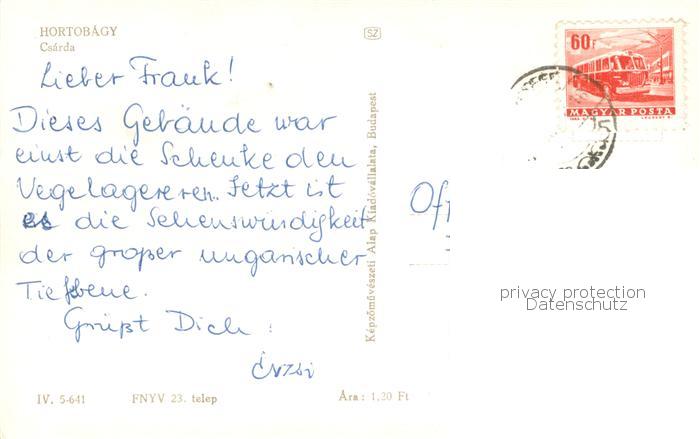 HORTOBÁGY
Csárda
SZ
60f
MAGYAR POSTA
Lieber Frank!
Dieses Gebäude war
einst die Schenke den
Vegelagereren. Jetzt ist
es die Sehenswürdigkeit
der großer ungarischer
Tiefebene.
Grüßt Dich:
Évzsi
Képzőművészeti Alap Kiadóvállalata, Budapest
privacy protection
Datenschutz
IV. 5-641 FNYV 23. telep Ára: 1,20 Ft